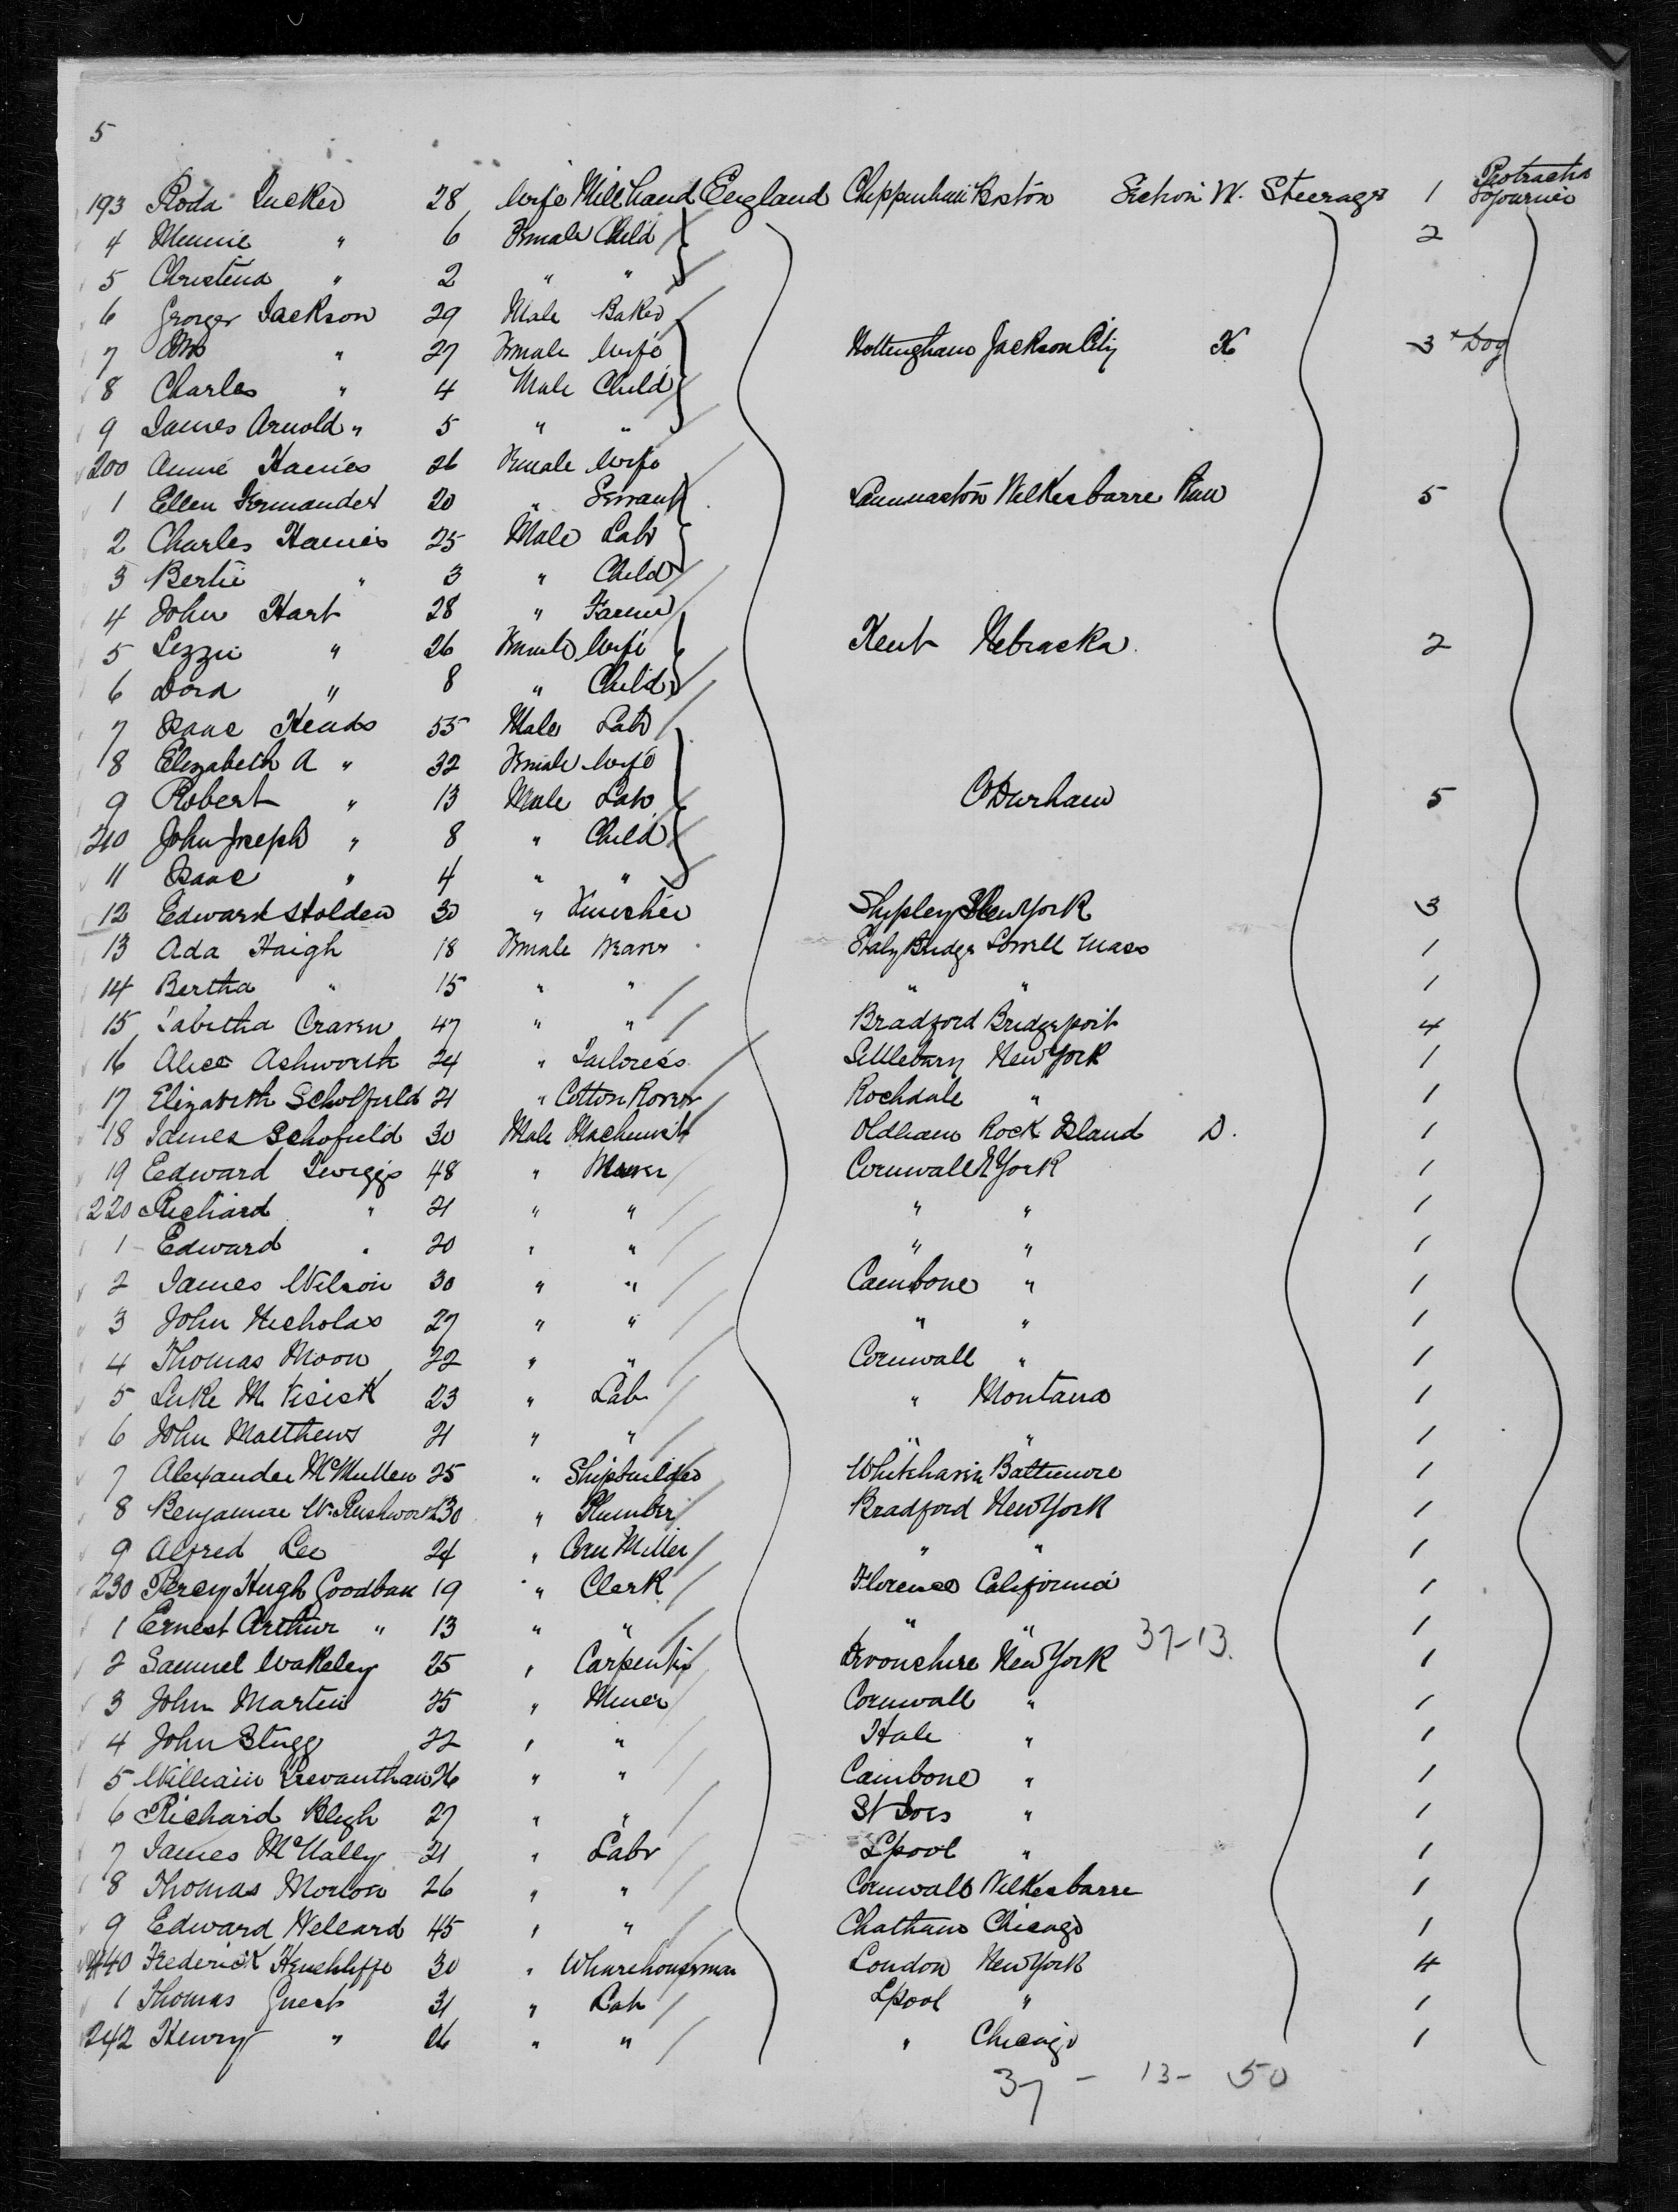 5
193 Roda Tucker 28 Wife Mill hand England Chippenham Boston Section W. Steerage 1 Protracted Sojourn
4 Minnie " 6 Female Child 2
5 Christena " 2 " "
6 George Jackson 29 Male Baker
7 Mrs " 27 Female Wife Nottingham Jackson City K 3 + Dog
8 Charles " 4 Male Child
9 James Arnold " 5 " "
200 Annie Hames 26 Female Wife
1 Ellen Fernandes 20 " Servant Launaston Wilkesbarre Penn 5
2 Charles Hames 25 Male Labr
3 Bertie " 3 " Child
4 John Hart 28 " Farmer
5 Lizzie " 26 Female Wife Kent Nebraska 2
6 Dora " 8 " Child
7 Isaac Heads 55 Male Labr
8 Elizabeth A " 32 Female Wife
9 Robert " 13 Male Labr Durham 5
210 John Joseph " 8 " Child
11 Isaac " 4 " "
12 Edward Holden 30 " Shipley New York 3
13 Ada Haigh 18 Female Weaver Staly Bridge Lowell Mass 1
14 Bertha " 15 " " " " 1
15 Tabitha Craven 47 " " Bradford Bridgeport 4
16 Alice Ashworth 24 " Tailoress New York 1
17 Elizabeth Scholfield 21 " Cotton Rover Rochdale " 1
18 James Schofield 30 Male Machinist Oldham Rock Island D. 1
19 Eedward Twiggs 48 " Miner Cornwall N York 1
220 Richard " 21 " " " " 1
1 Edward " 20 " " " " 1
2 James Wilson 30 " " Cambone " 1
3 John Nicholas 27 " " " " 1
4 Thomas Moon 22 " " Cornwall " 1
5 Luke M. Visick 23 " Lab " Montana 1
6 John Matthews 21 " " " " 1
7 Alexander McMullen 25 " Shipbuilder Whitehaven Baltimore 1
8 Benjamin W. Rushworth 30 " Plumber Bradford New York 1
9 Alfred Lee 24 " Corn Miller " " 1
230 Percy Hugh Goodban 19 " Clerk Florence California 1
1 Ernest Arthur " 13 " " " " 1
37-13.
2 Samuel Wakeley 25 " Carpenter Devonshire New York 1
3 John Martin 25 " Miner Cornwall " 1
4 John Stugg 22 " " Hale " 1
5 William Trevanthan 26 " " Cambone " 1
6 Richard Bligh 27 " " St Ives " 1
7 James McNally 21 " Labr Lpool " 1
8 Thomas Morton 26 " " Cornwall Wilkesbarre 1
9 Edward Wellard 45 " " Chatham Chicago 1
240 Frederick Henchliffe 30 " Wharehouseman London New York 4
1 Thomas Guest 31 " Lab Lpool " 1
242 Henry " 26 " " " Chicago 1
37 - 13 - 50